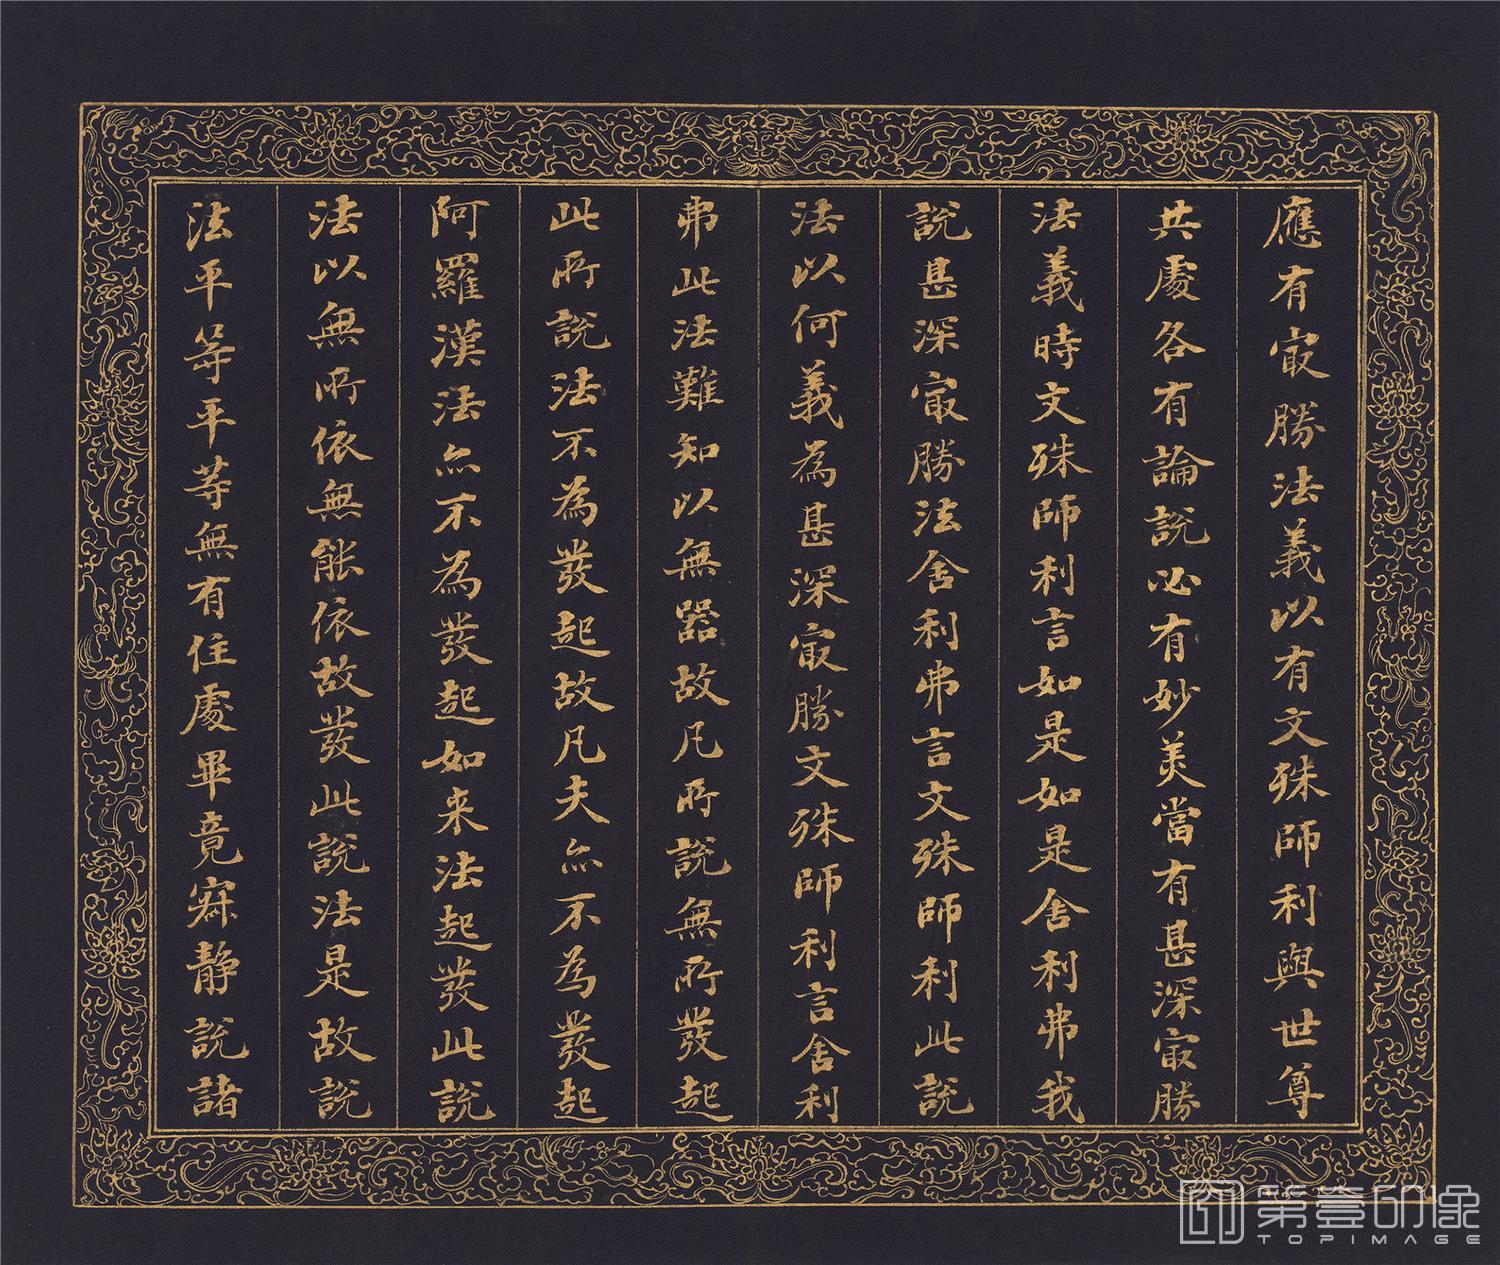 應有冣勝法義以有文殊師利與世尊
共處各有論說必有妙美當有甚深冣勝
法義時文殊師利言如是如是舍利弗我
說甚深冣勝法舍利弗言文殊師利此說
法以何義為甚深冣勝文殊師利言舍利
弗此法難知以無器故凡所說無所發起
此所說法不為發起故凡夫亦不為發起
阿羅漢法亦不為發起如来法起發此說
法以無所依無能依故發此說法是故說
法平等平等無有住處畢竟寂静說諸
第壹印像
TOPIMAGE